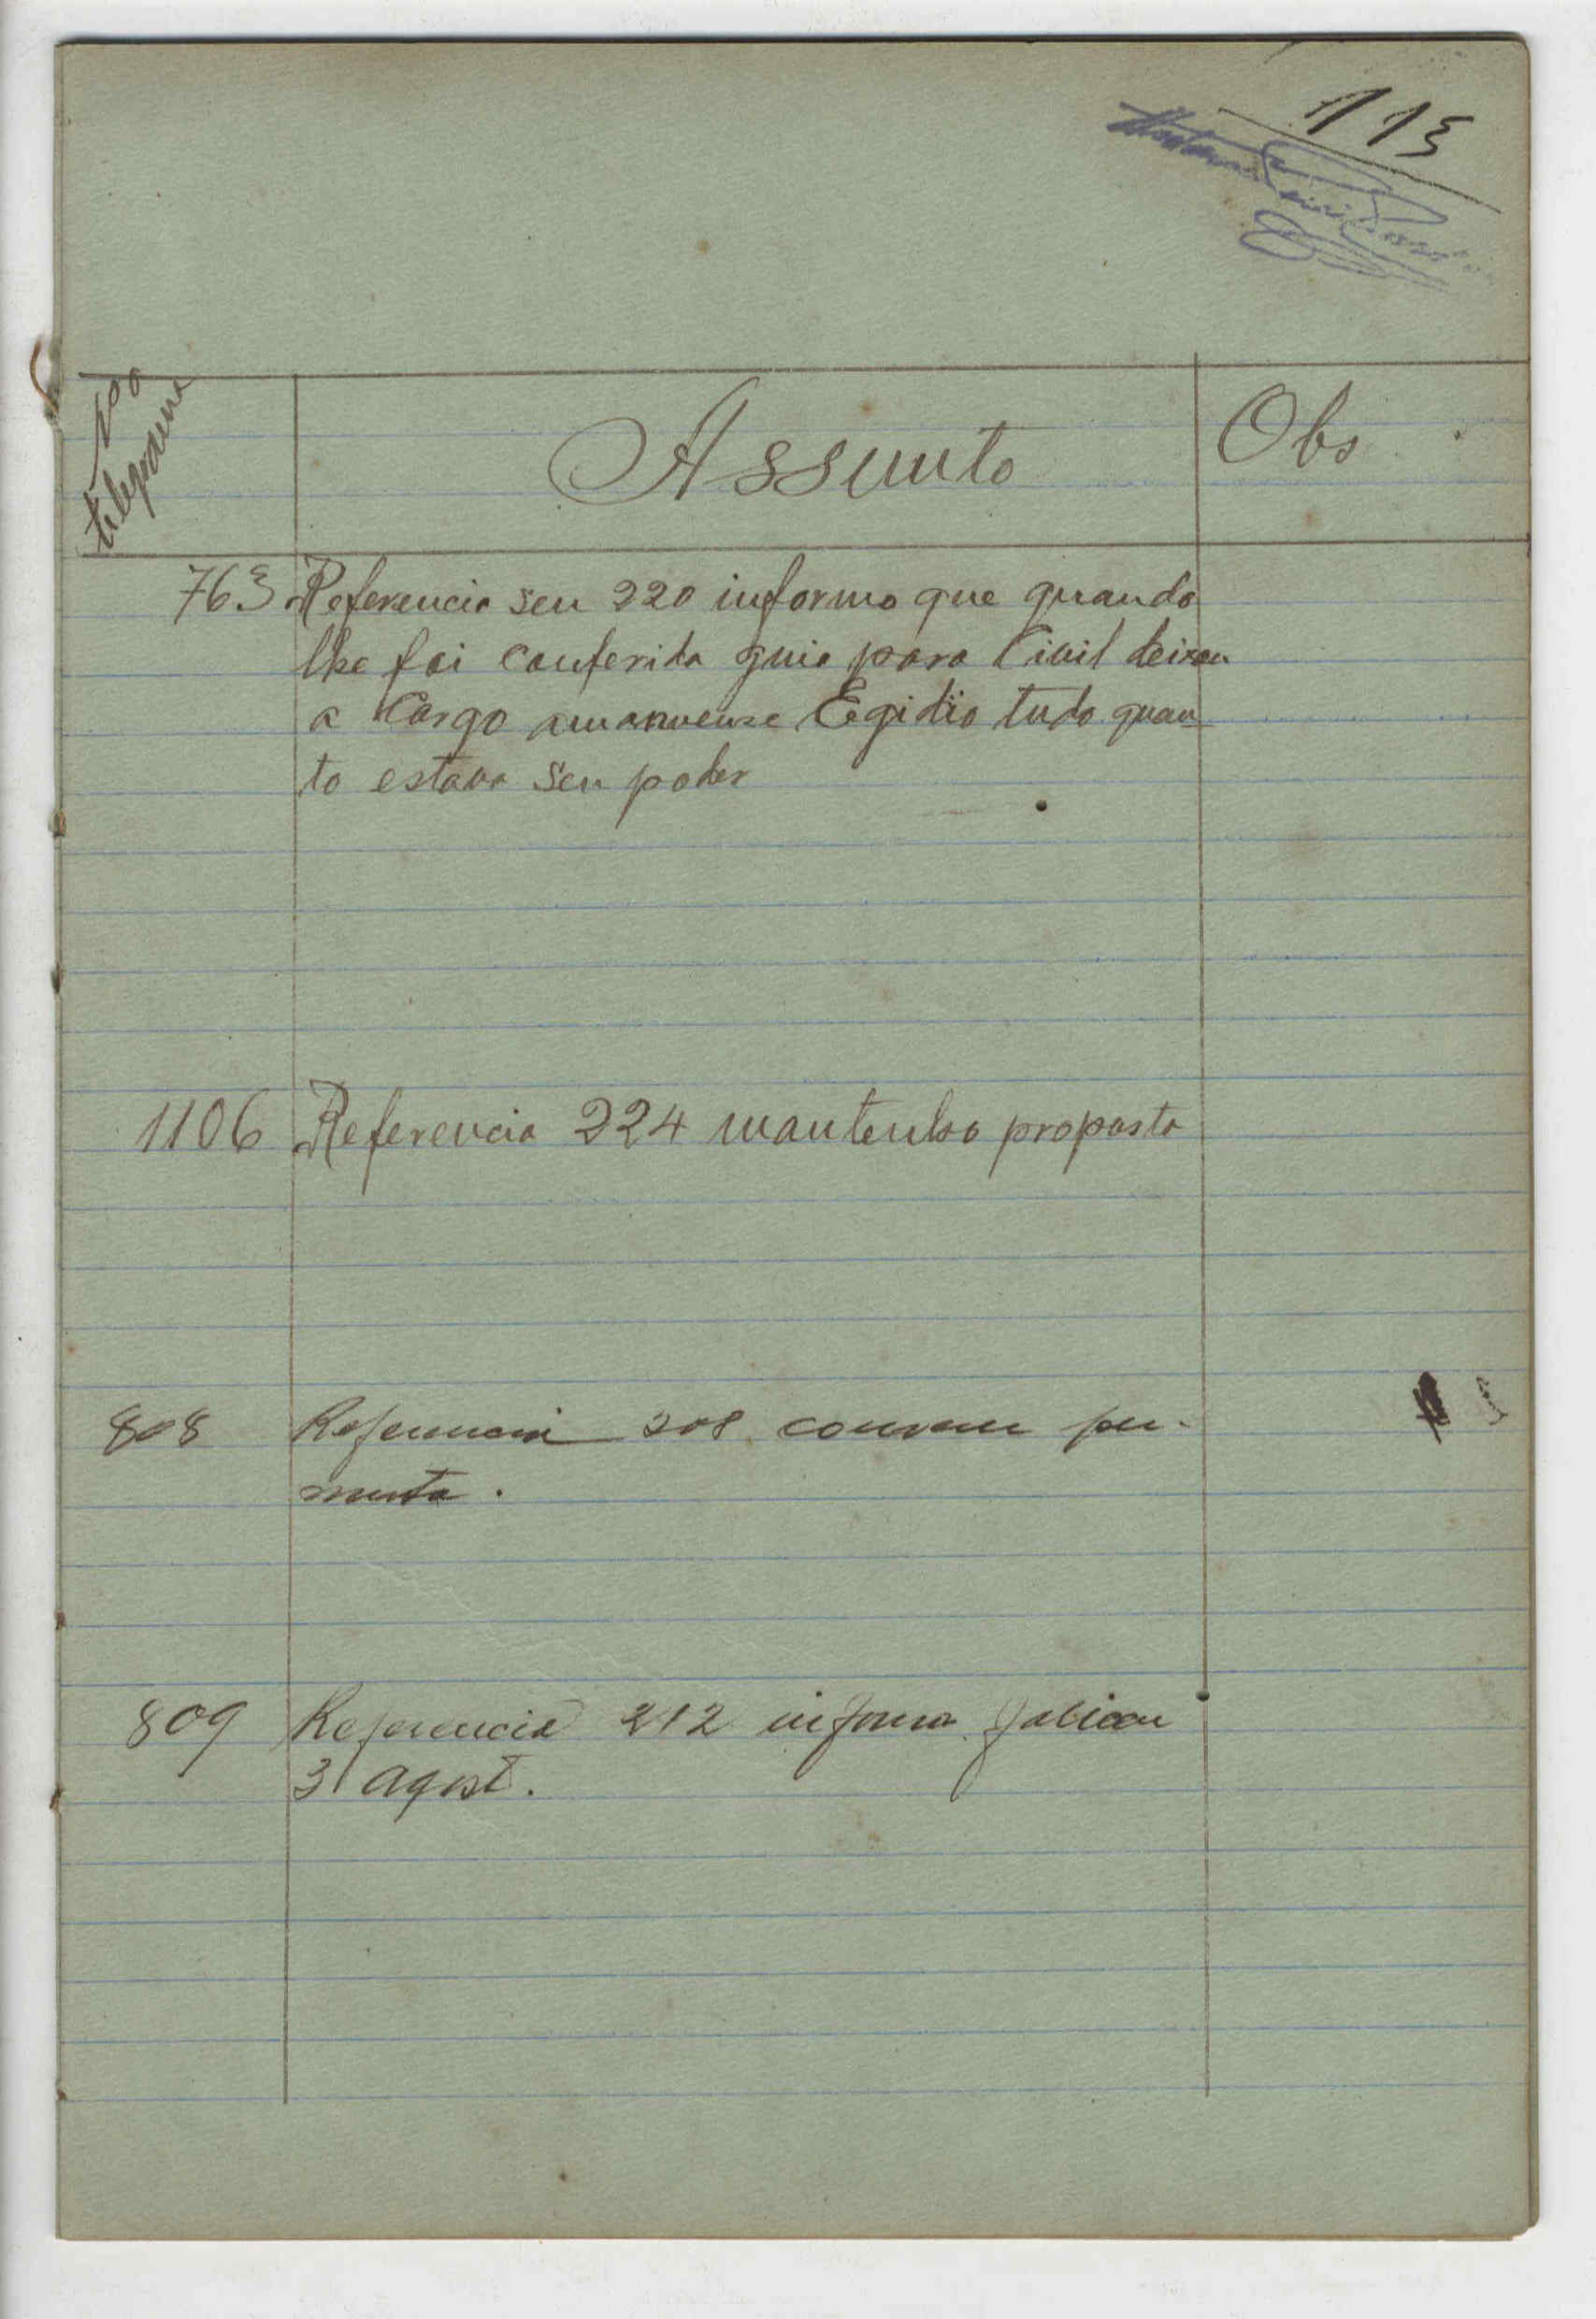 113
No telegrama
Assunto
Obs
763 Referencia seu 220 informo que quando
lhe foi conferida guia para Civil deixou
a Cargo amanuense Egidio tudo quan
to estava seu poder
1106 Referencia 224 mantenho proposta
808 Referencia 208 convem per-
muta.
809 Referencia 212 informa faliceu
31 Agost.